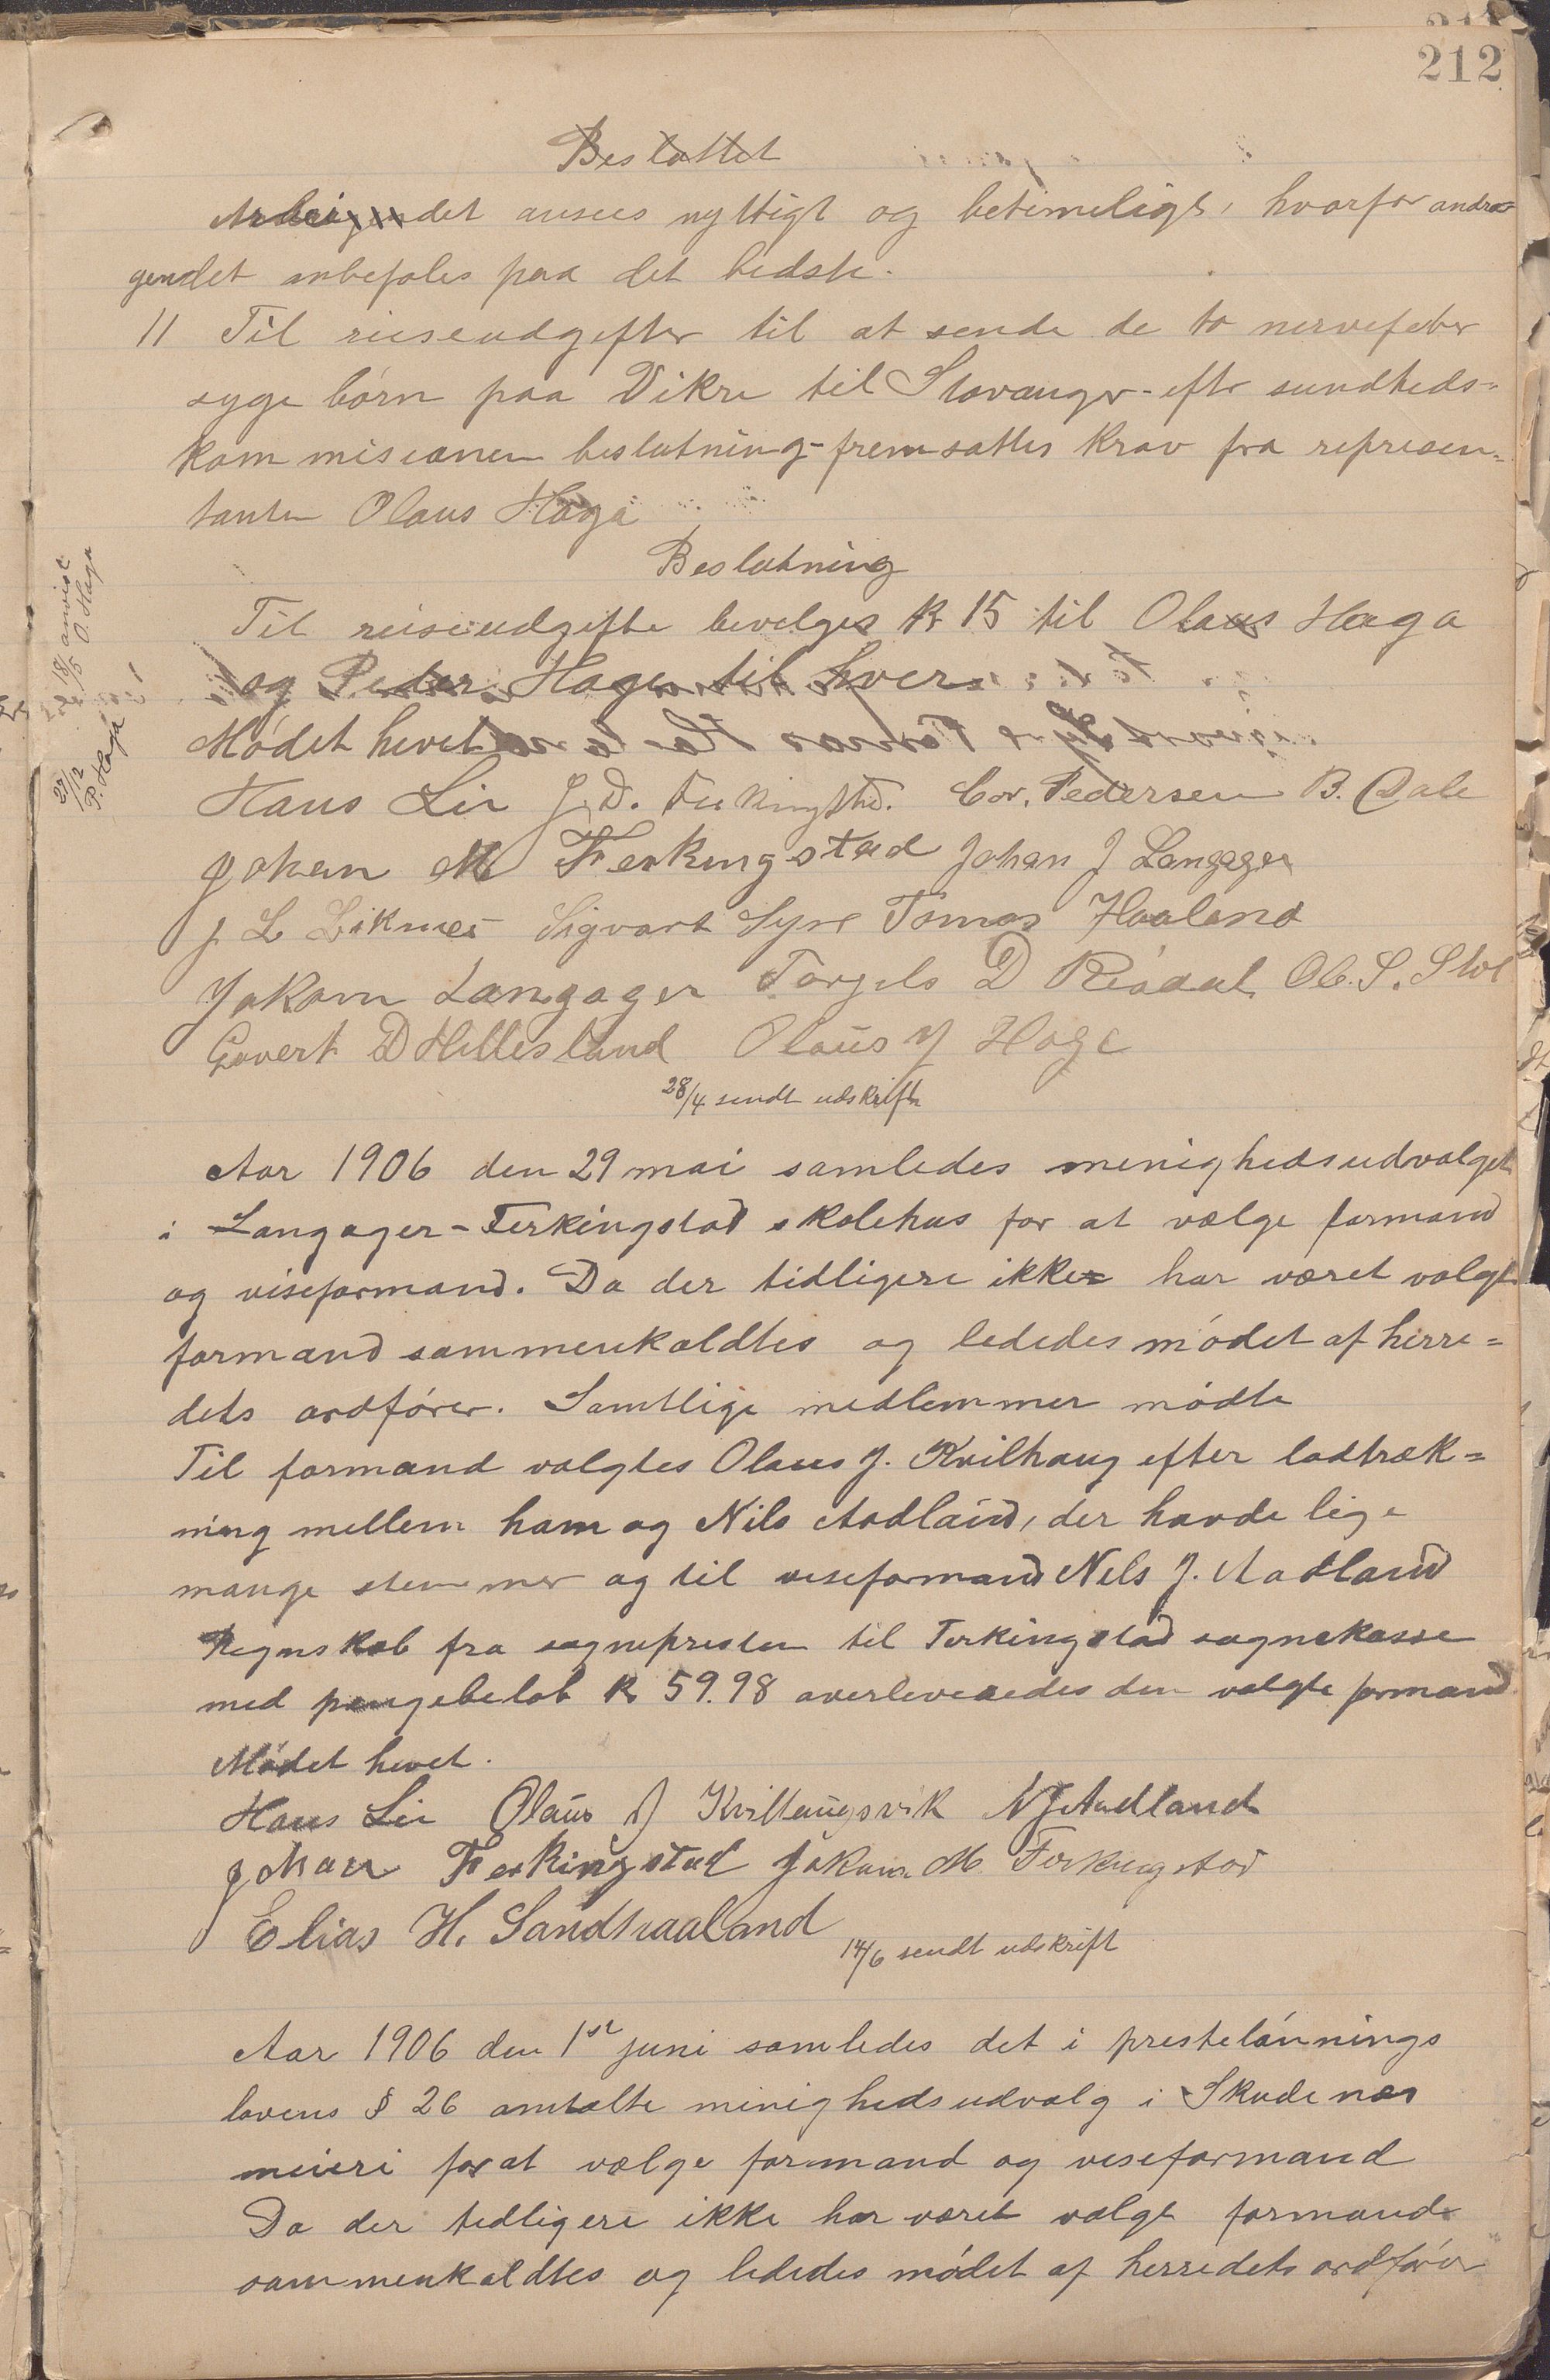 212
Besluttet
Arbeigendet ansees nyttigt og betimeligt, hvorfor andra-
gendet anbefoles paa det bedste.
11 Til reiseudgifter til at sende de to nervefeber
syge børn paa Vikre til Stavanger - efter sundheds-
kommisionen beslutning - fremsattes krav fra represen-
tanten Olaus Haga
Beslutning
Til reiseudgifte bevelges Kr 15 til Olaus Haga
og Peder Haga til hver
Mødet hevet
Hans Lie J. D. Ferkingstad. Cor. Pedersen B. Dale
Johan M Ferkingstad Johan J Langager
J L Liknes Sigvart Syre Tomas Haaland
Jakom Langager Torgels D Riodal Ol. S. Stol
Govert D Hillesland Olaus J Haga
28/4 sendt udskrift
18/5 anvist O. Haga
27/12 P. Haga
Aar 1906 den 29 mai samledes menighedsudvalget
i Langager-Ferkingstad skolehus for at vælge formand
og viseformand. Da der tidligere ikke har været valgt
formand sammenkaldtes og lededes mødet af herre=
dets ordfører. Samtlige medlemmer mødte
Til formand valgtes Olaus J. Kvilhaug efter lodtræk=
ning mellem ham og Nils Aadland, der havde lige
mange stemmer og til viseformand Nels J. Aadland
Regnskab fra sognepresten til Ferkingstad sognekasse
med pengebeløb Kr 59.98 overleveredes den valgte formand
Mødet hevet.
Hans Lie Olaus J Kvilhaugsvik N J Aadland
Johan Ferkingstad Jakom M Ferkingstad
Elias H. Sandhaaland
14/6 sendt udskrift
Aar 1906 den 1st juni samledes det i prestelønnings
lovens § 26 omtalte menighedsudvalg i Skudenes
meieri for at vælge formand og viseformand
Da der tidligere ikke har været valgt formand
sammenkaldtes og lededes mødet af herredets ordfører